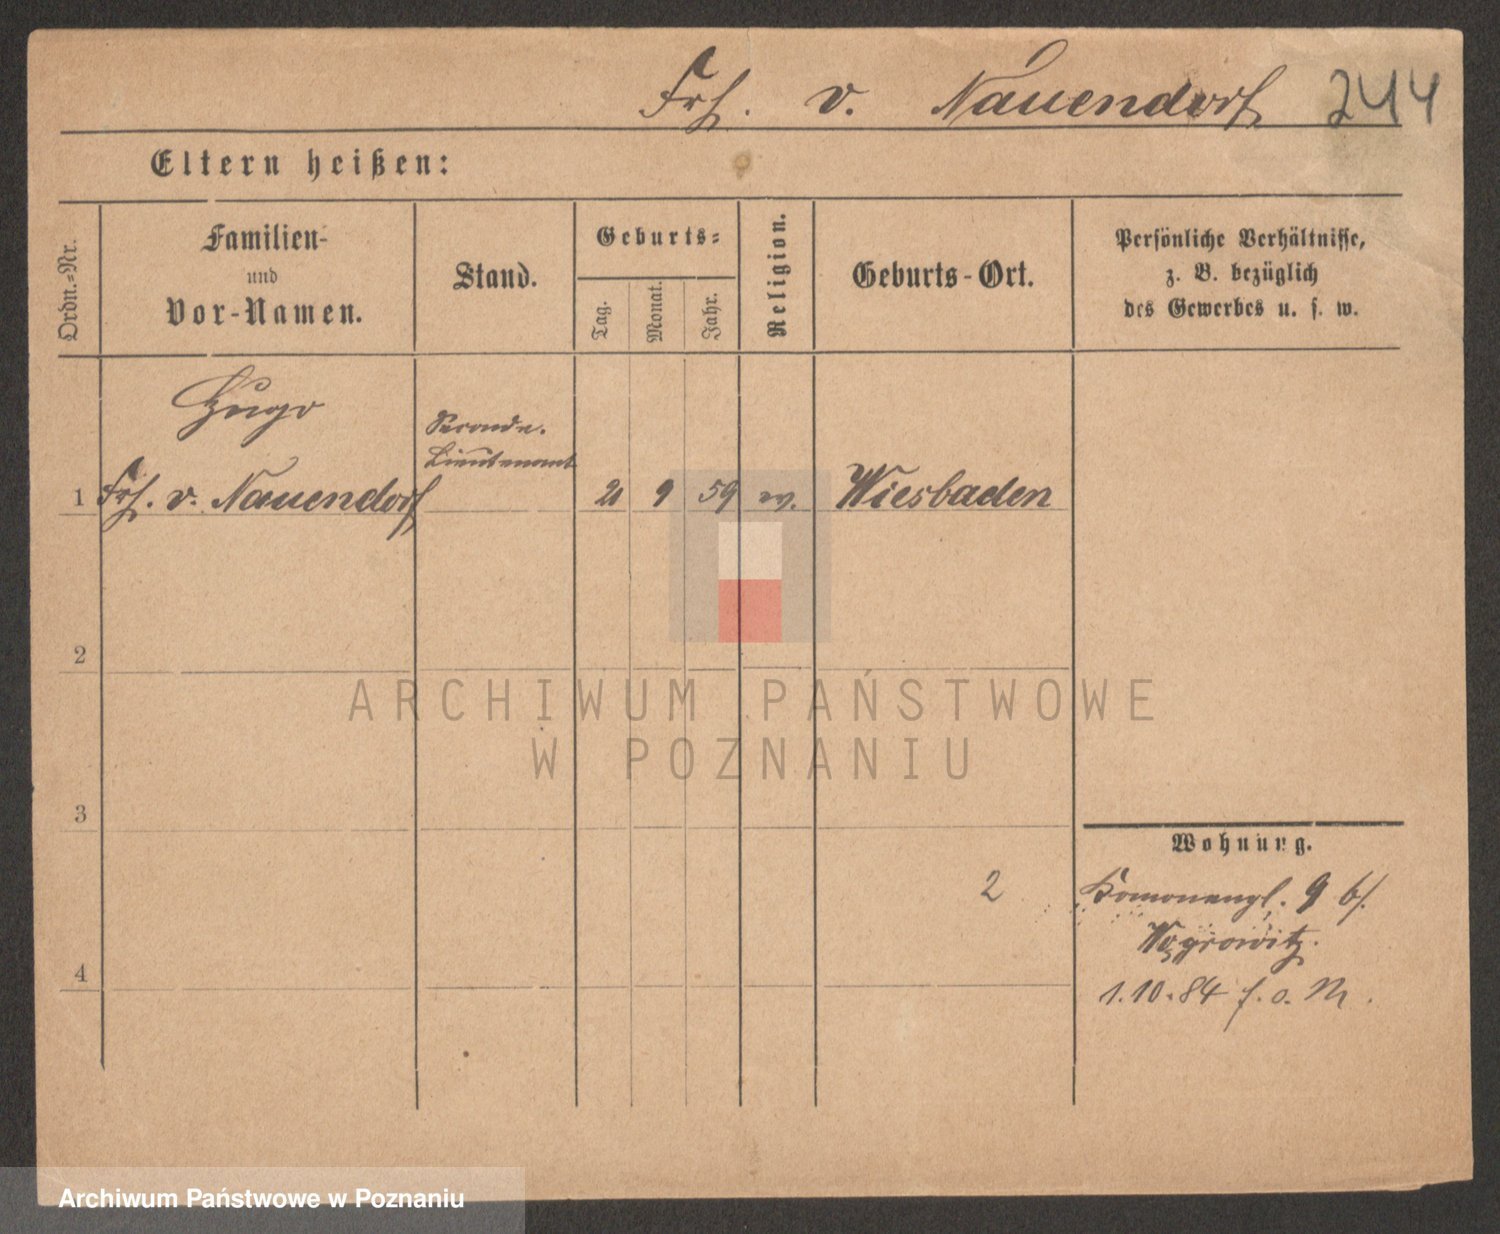 Frh. v. Nauendorf 244
Eltern heißen:
Ordn.-Nr.
Familien-
und
Vor-Namen.
Stand.
Geburts-
Tag.
Monat.
Jahr.
Religion.
Geburts-Ort.
Persönliche Verhältnisse,
z. B. bezüglich
des Gewerbes u. s. w.
Hugo
Seconde-
Lieutenant
1 Frh. v. Nauendorf 21 9 59 ev. Wiesbaden
2
ARCHIWUM PAŃSTWOWE
W POZNANIU
3
Wohnung.
2
9 b/.
Wągrowitz.
4
1.10.84 f. o. M.
Archiwum Państwowe w Poznaniu